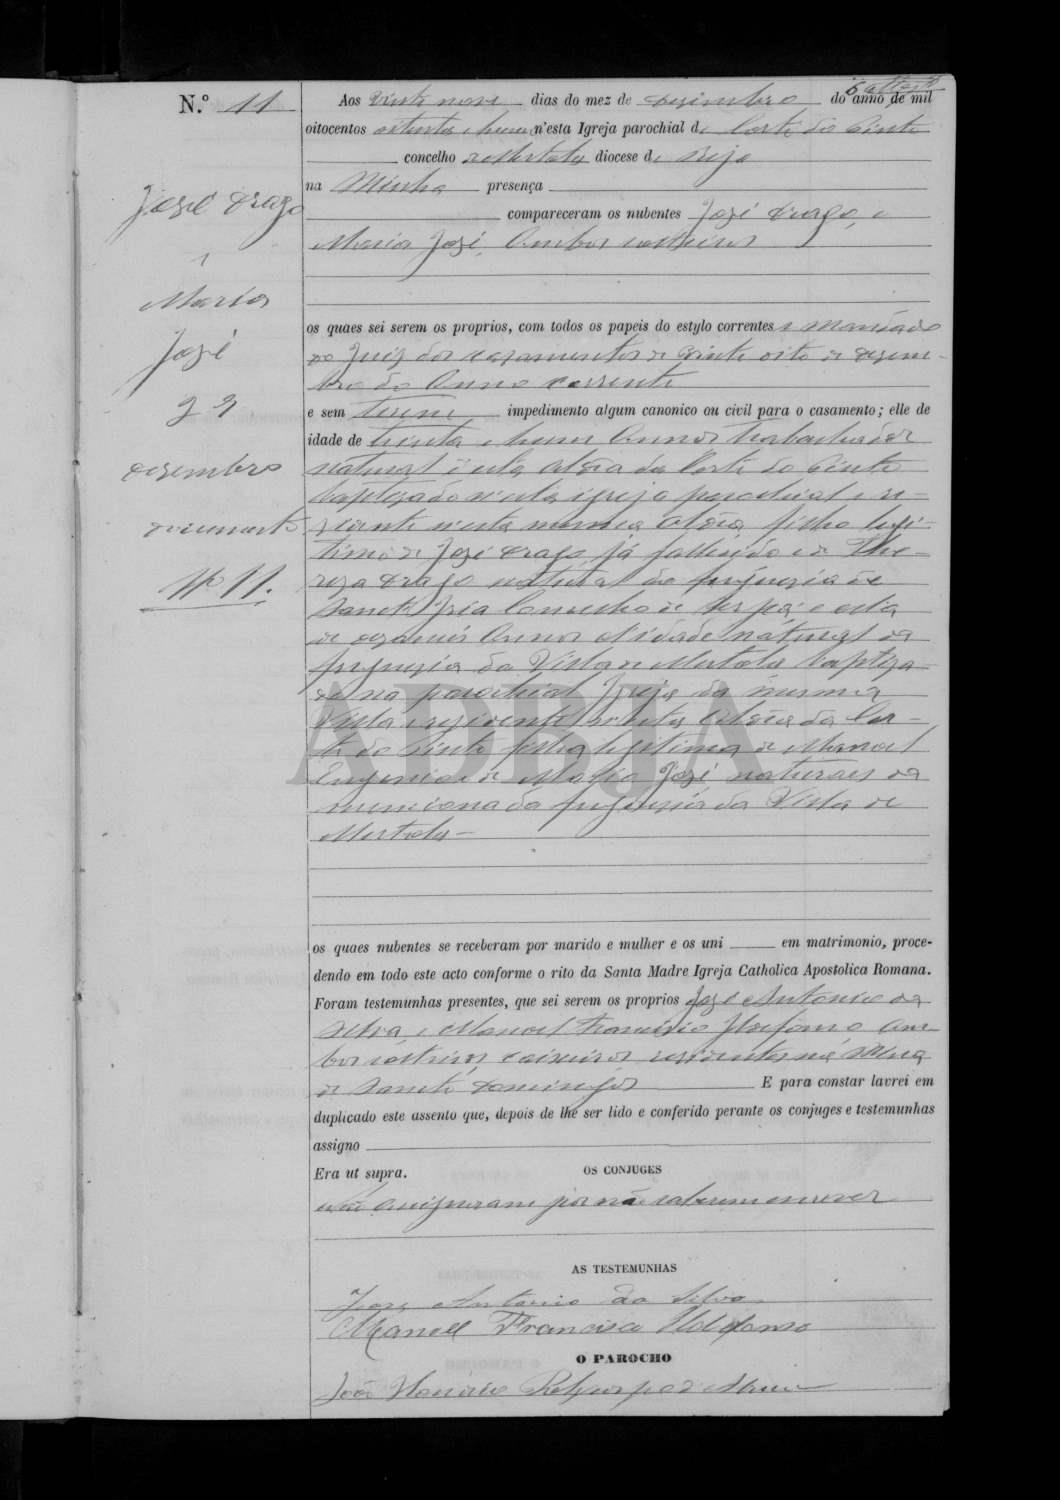 N.º 11
José Drago
e
Maria
José
29
Dezembro
Documento
Nº 11.
Aos vinte nove dias do mez de Dezembro do anno de mil
oitocentos oitenta e hum n'esta Igreja parochial de Corte do Pinto
concelho de Mertola diocese de Beja
na Minha presença
compareceram os nubentes José Drago, e
Maria José, Ambos solteiros
os quaes sei serem os proprios, com todos os papeis do estylo correntes e mandado
do Juiz dos cazamentos de vinte oito de Dezem-
bro do Anno corrente
e sem terem impedimento algum canonico ou civil para o casamento; elle de
idade de trinta e hum Annos trabalhador
natural d'esta Aldeia da Corte do Pinto
baptizado n'esta igreja parochial e re-
zidente n'esta mesma Aldeia, filho legi-
timo de José Drago já fallecido e de The-
reza Drago natural da freguezia de
Santa Iria Concelho de Serpa: e ella
de dezaseis Annos d'idade natural da
freguezia da Villa de Mertola baptiza-
da na parochial Igreja da mesma
Villa e rezidente n'esta Aldeia da Cor-
te do Pinto filha legitima de Manoel
Eugenio e de Maria José naturaes da
mencionada freguezia da Villa de
Mertola -
ADBJA
os quaes nubentes se receberam por marido e mulher e os uni em matrimonio, proce-
dendo em todo este acto conforme o rito da Santa Madre Igreja Catholica Apostolica Romana.
Foram testemunhas presentes, que sei serem os proprios José Antonio da
Silva e Manoel Francisco Ildefonso Am-
bos solteiros, caixeiros rezidentes na Mina
de Santo Domingos E para constar lavrei em
duplicado este assento que, depois de lhe ser lido e conferido perante os conjuges e testemunhas
assigno
Era ut supra.
OS CONJUGES
Não assignaram por não saberem escrever
AS TESTEMUNHAS
José Antonio da Silva
Manoel Francisco Ildefonso
O PAROCHO
João